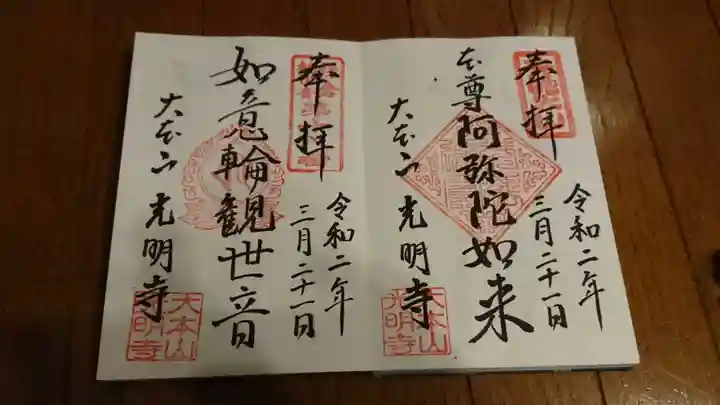 奉拝
令和二年
三月二十一日
本尊阿弥陀如来
大本山光明寺
大本山
光明寺
奉拝
令和二年
三月二十一日
如意輪観世音
大本山光明寺
大本山
光明寺